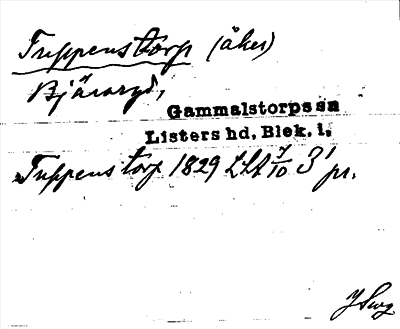 Tuppenstorp (åker)
Bjäraryd,
Gammalstorps sn
Listers hd, Blek. l.
Tuppens torp 1829 LSA 7/10 3' pr.